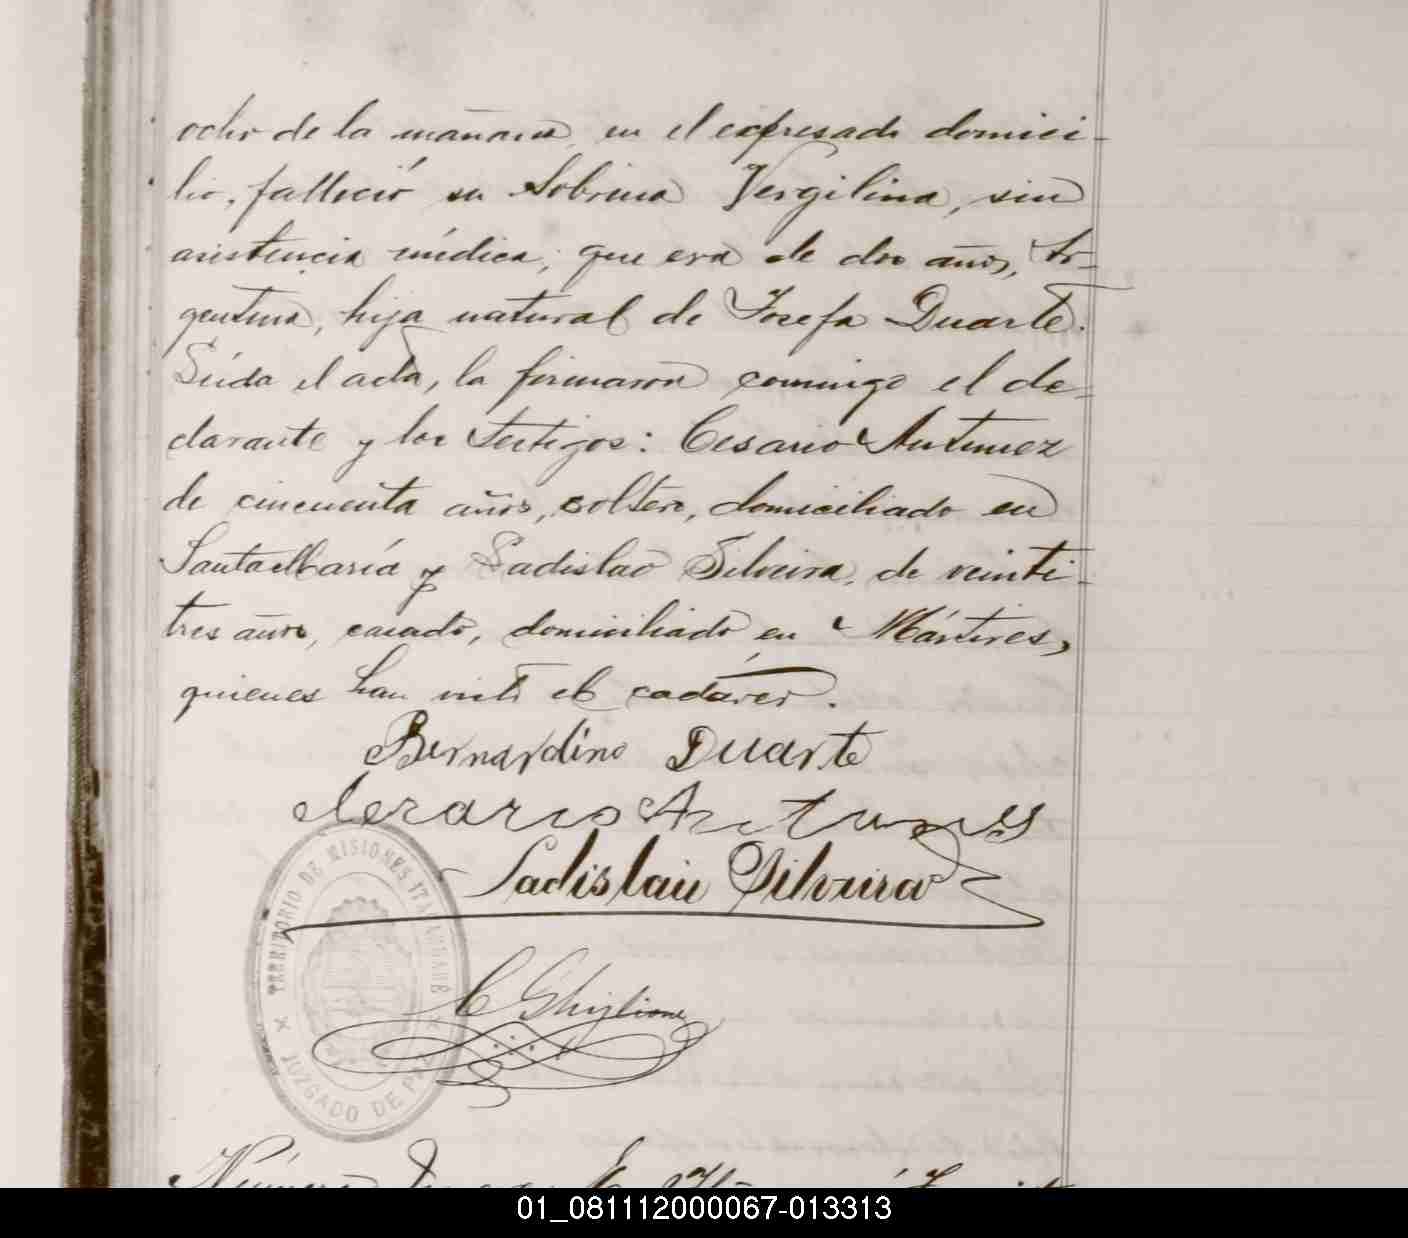 ocho de la mañana, en el expresado domici-
lio, falleció su sobrina Vergilina, sin
asistencia médica; que era de dos años, Ar-
gentina, hija natural de Josefa Duarte.
Leída el acta, la firmaron conmigo el de-
clarante y los testigos: Cesario Antunez
de cincuenta años, soltero, domiciliado en
Santa María y Ladislao Silveira, de veinti-
tres años, casado, domiciliado en Mártires,
quienes han visto el cadáver.
Bernardino Duarte
Cesario Antunes
Ladislau Silveira
TERRITORIO DE MISIONES
JUZGADO DE
C Ghiglione
Número
01_081112000067-013313